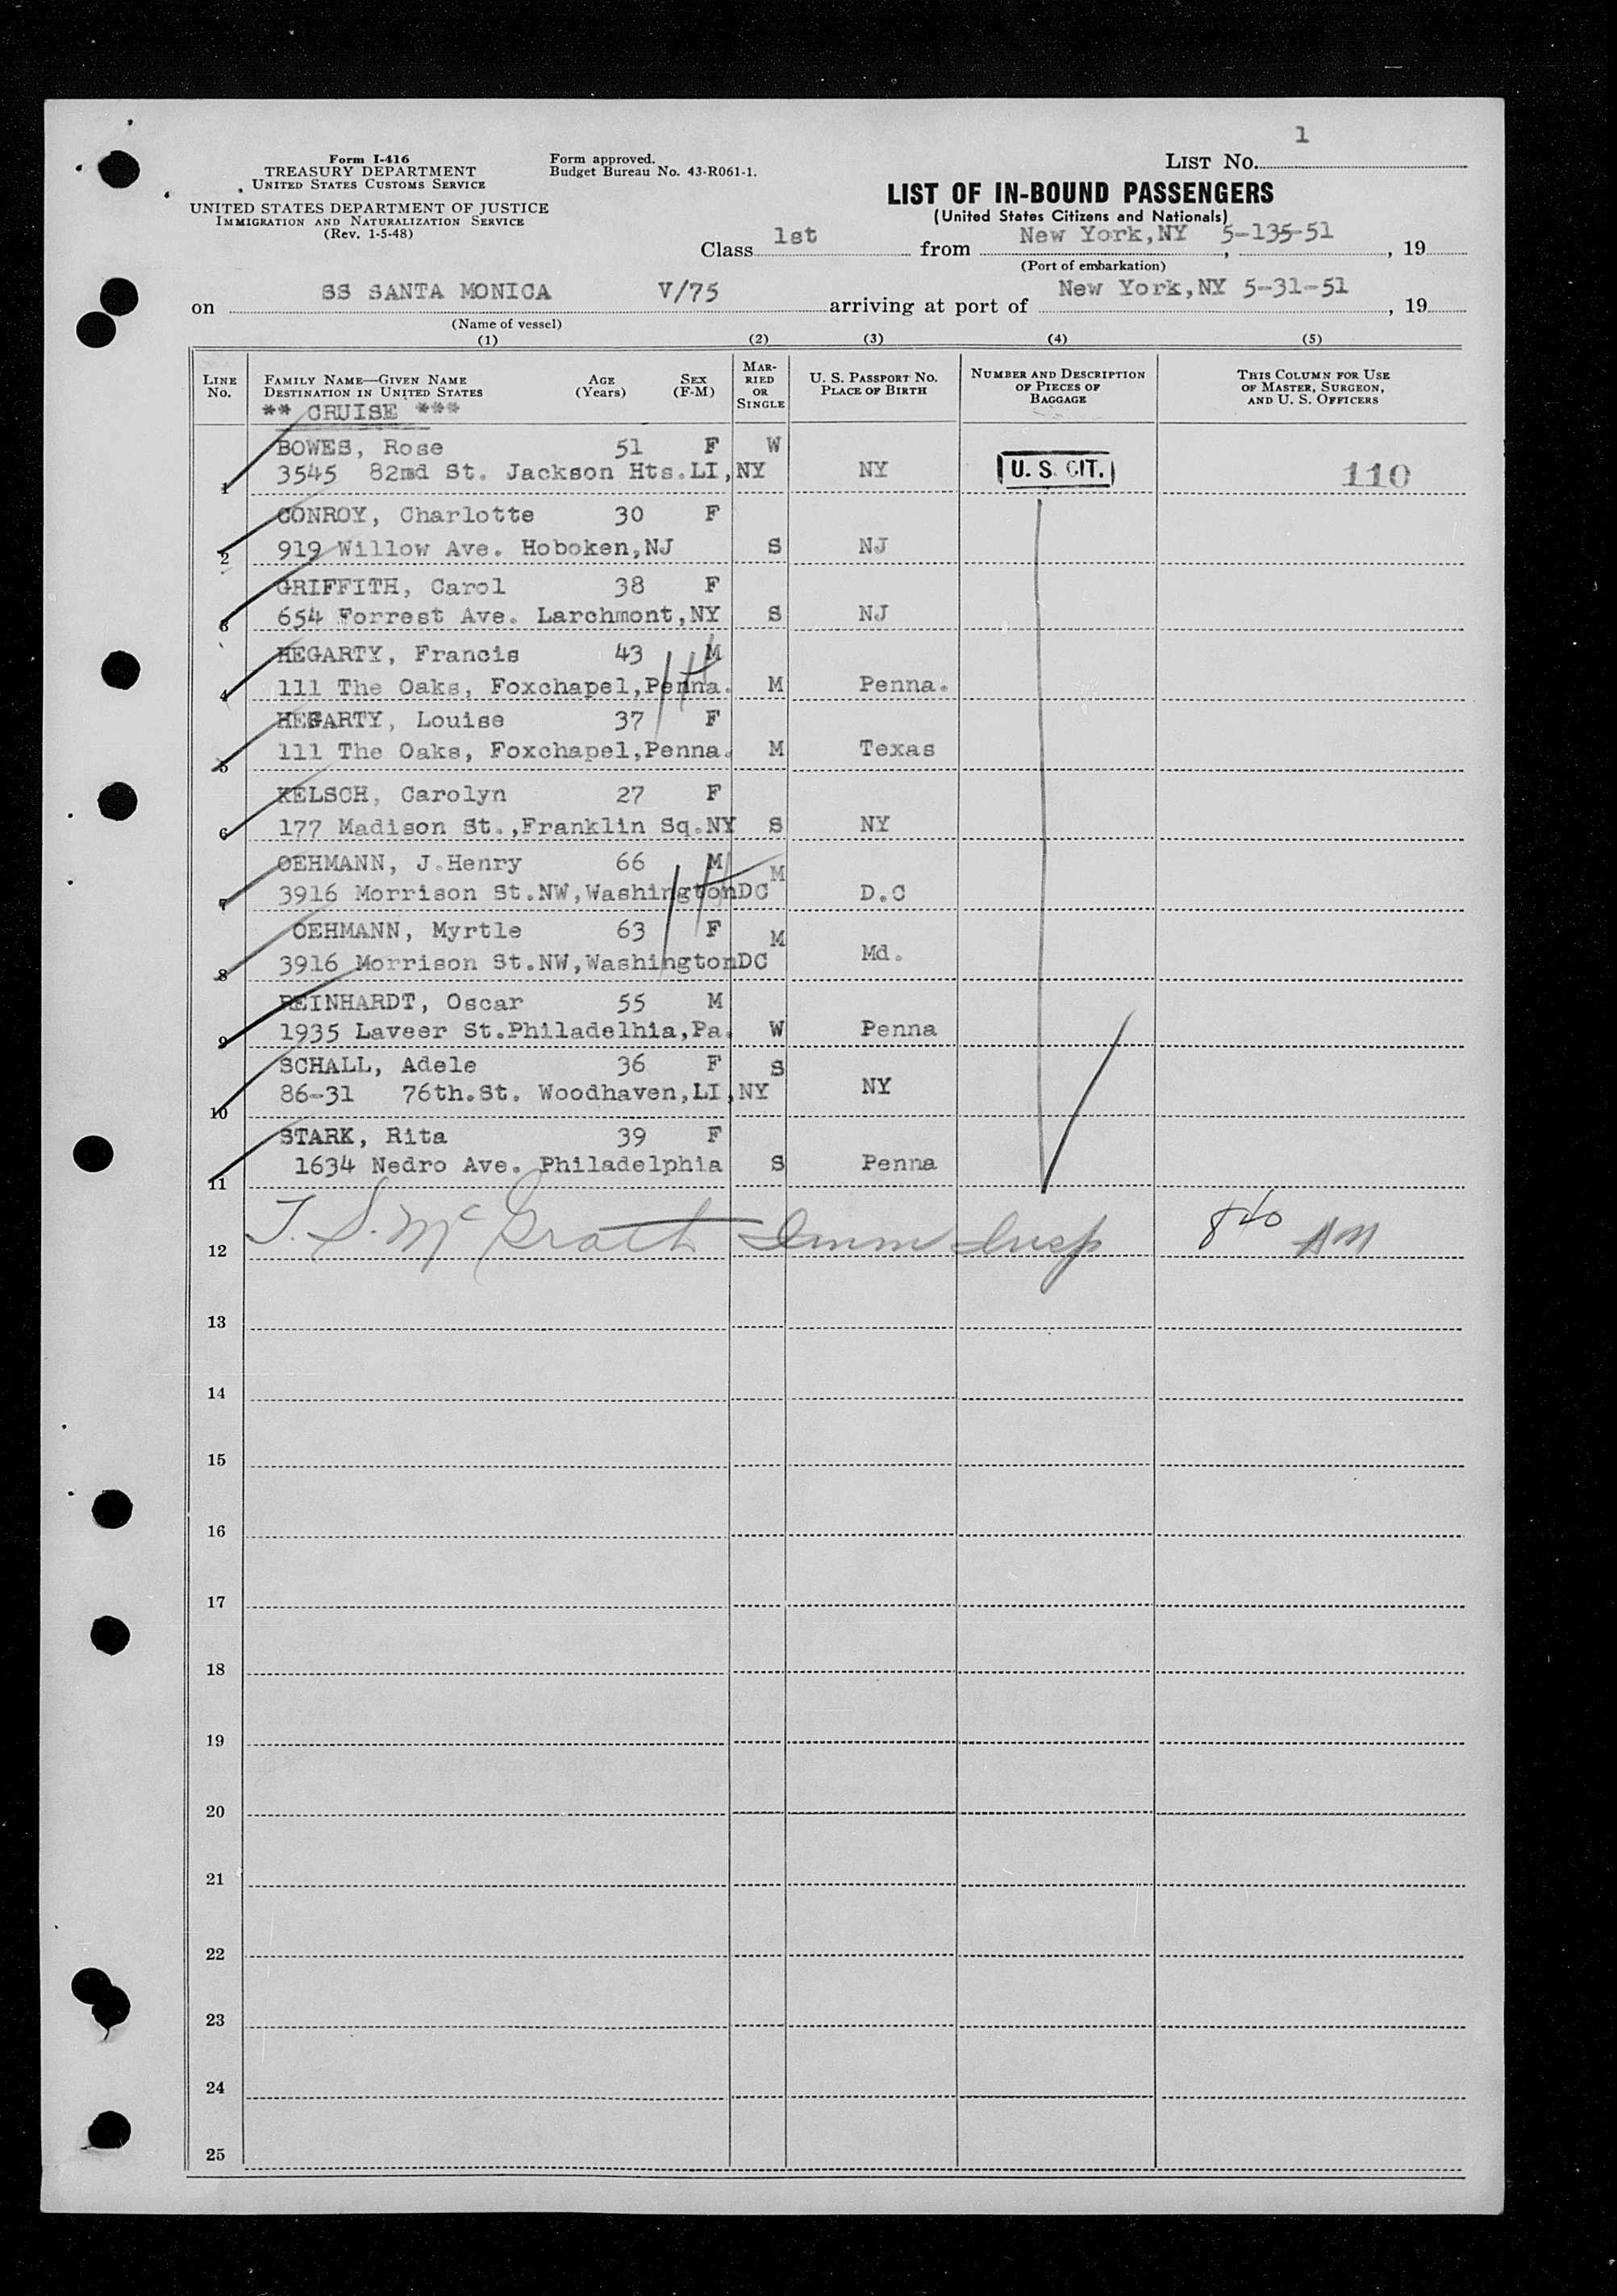 1
Form I-416
TREASURY DEPARTMENT
UNITED STATES CUSTOMS SERVICE
UNITED STATES DEPARTMENT OF JUSTICE
IMMIGRATION AND NATURALIZATION SERVICE
(Rev. 1-5-48)
Form approved.
Budget Bureau No. 43-R061-1.
LIST NO.
LIST OF IN-BOUND PASSENGERS
(United States Citizens and Nationals)
Class 1st from New York,NY 5-135-51, 19
(Port of embarkation)
on SS SANTA MONICA V/75 arriving at port of New York,NY 5-31-51, 19
(Name of vessel)
(1) (2) (3) (4) (5)
LINE NO. FAMILY NAME—GIVEN NAME DESTINATION IN UNITED STATES AGE (Years) SEX (F-M) MARRIED OR SINGLE U. S. PASSPORT NO. PLACE OF BIRTH NUMBER AND DESCRIPTION OF PIECES OF BAGGAGE THIS COLUMN FOR USE OF MASTER, SURGEON, AND U. S. OFFICERS
** CRUISE ***
BOWES, Rose 51 F W
1 3545 82nd St. Jackson Hts.LI,NY NY U. S. CIT. 110
CONROY, Charlotte 30 F
2 919 Willow Ave. Hoboken,NJ S NJ
GRIFFITH, Carol 38 F
3 654 Forrest Ave. Larchmont,NY S NJ
HEGARTY, Francis 43 M
4 111 The Oaks, Foxchapel,Penna. M Penna.
HEGARTY, Louise 37 F
5 111 The Oaks, Foxchapel,Penna. M Texas
KELSCH, Carolyn 27 F
6 177 Madison St.,Franklin Sq.NY S NY
OEHMANN, J.Henry 66 M M
7 3916 Morrison St.NW,WashingtonDC D.C
OEHMANN, Myrtle 63 F M
8 3916 Morrison St.NW,WashingtonDC Md.
REINHARDT, Oscar 55 M
9 1935 Laveer St.Philadelhia,Pa. W Penna
SCHALL, Adele 36 F S
10 86-31 76th.St. Woodhaven,LI,NY NY
STARK, Rita 39 F
11 1634 Nedro Ave. Philadelphia S Penna
12 T. S. McGrath Imm Insp 840 AM
13
14
15
16
17
18
19
20
21
22
23
24
25